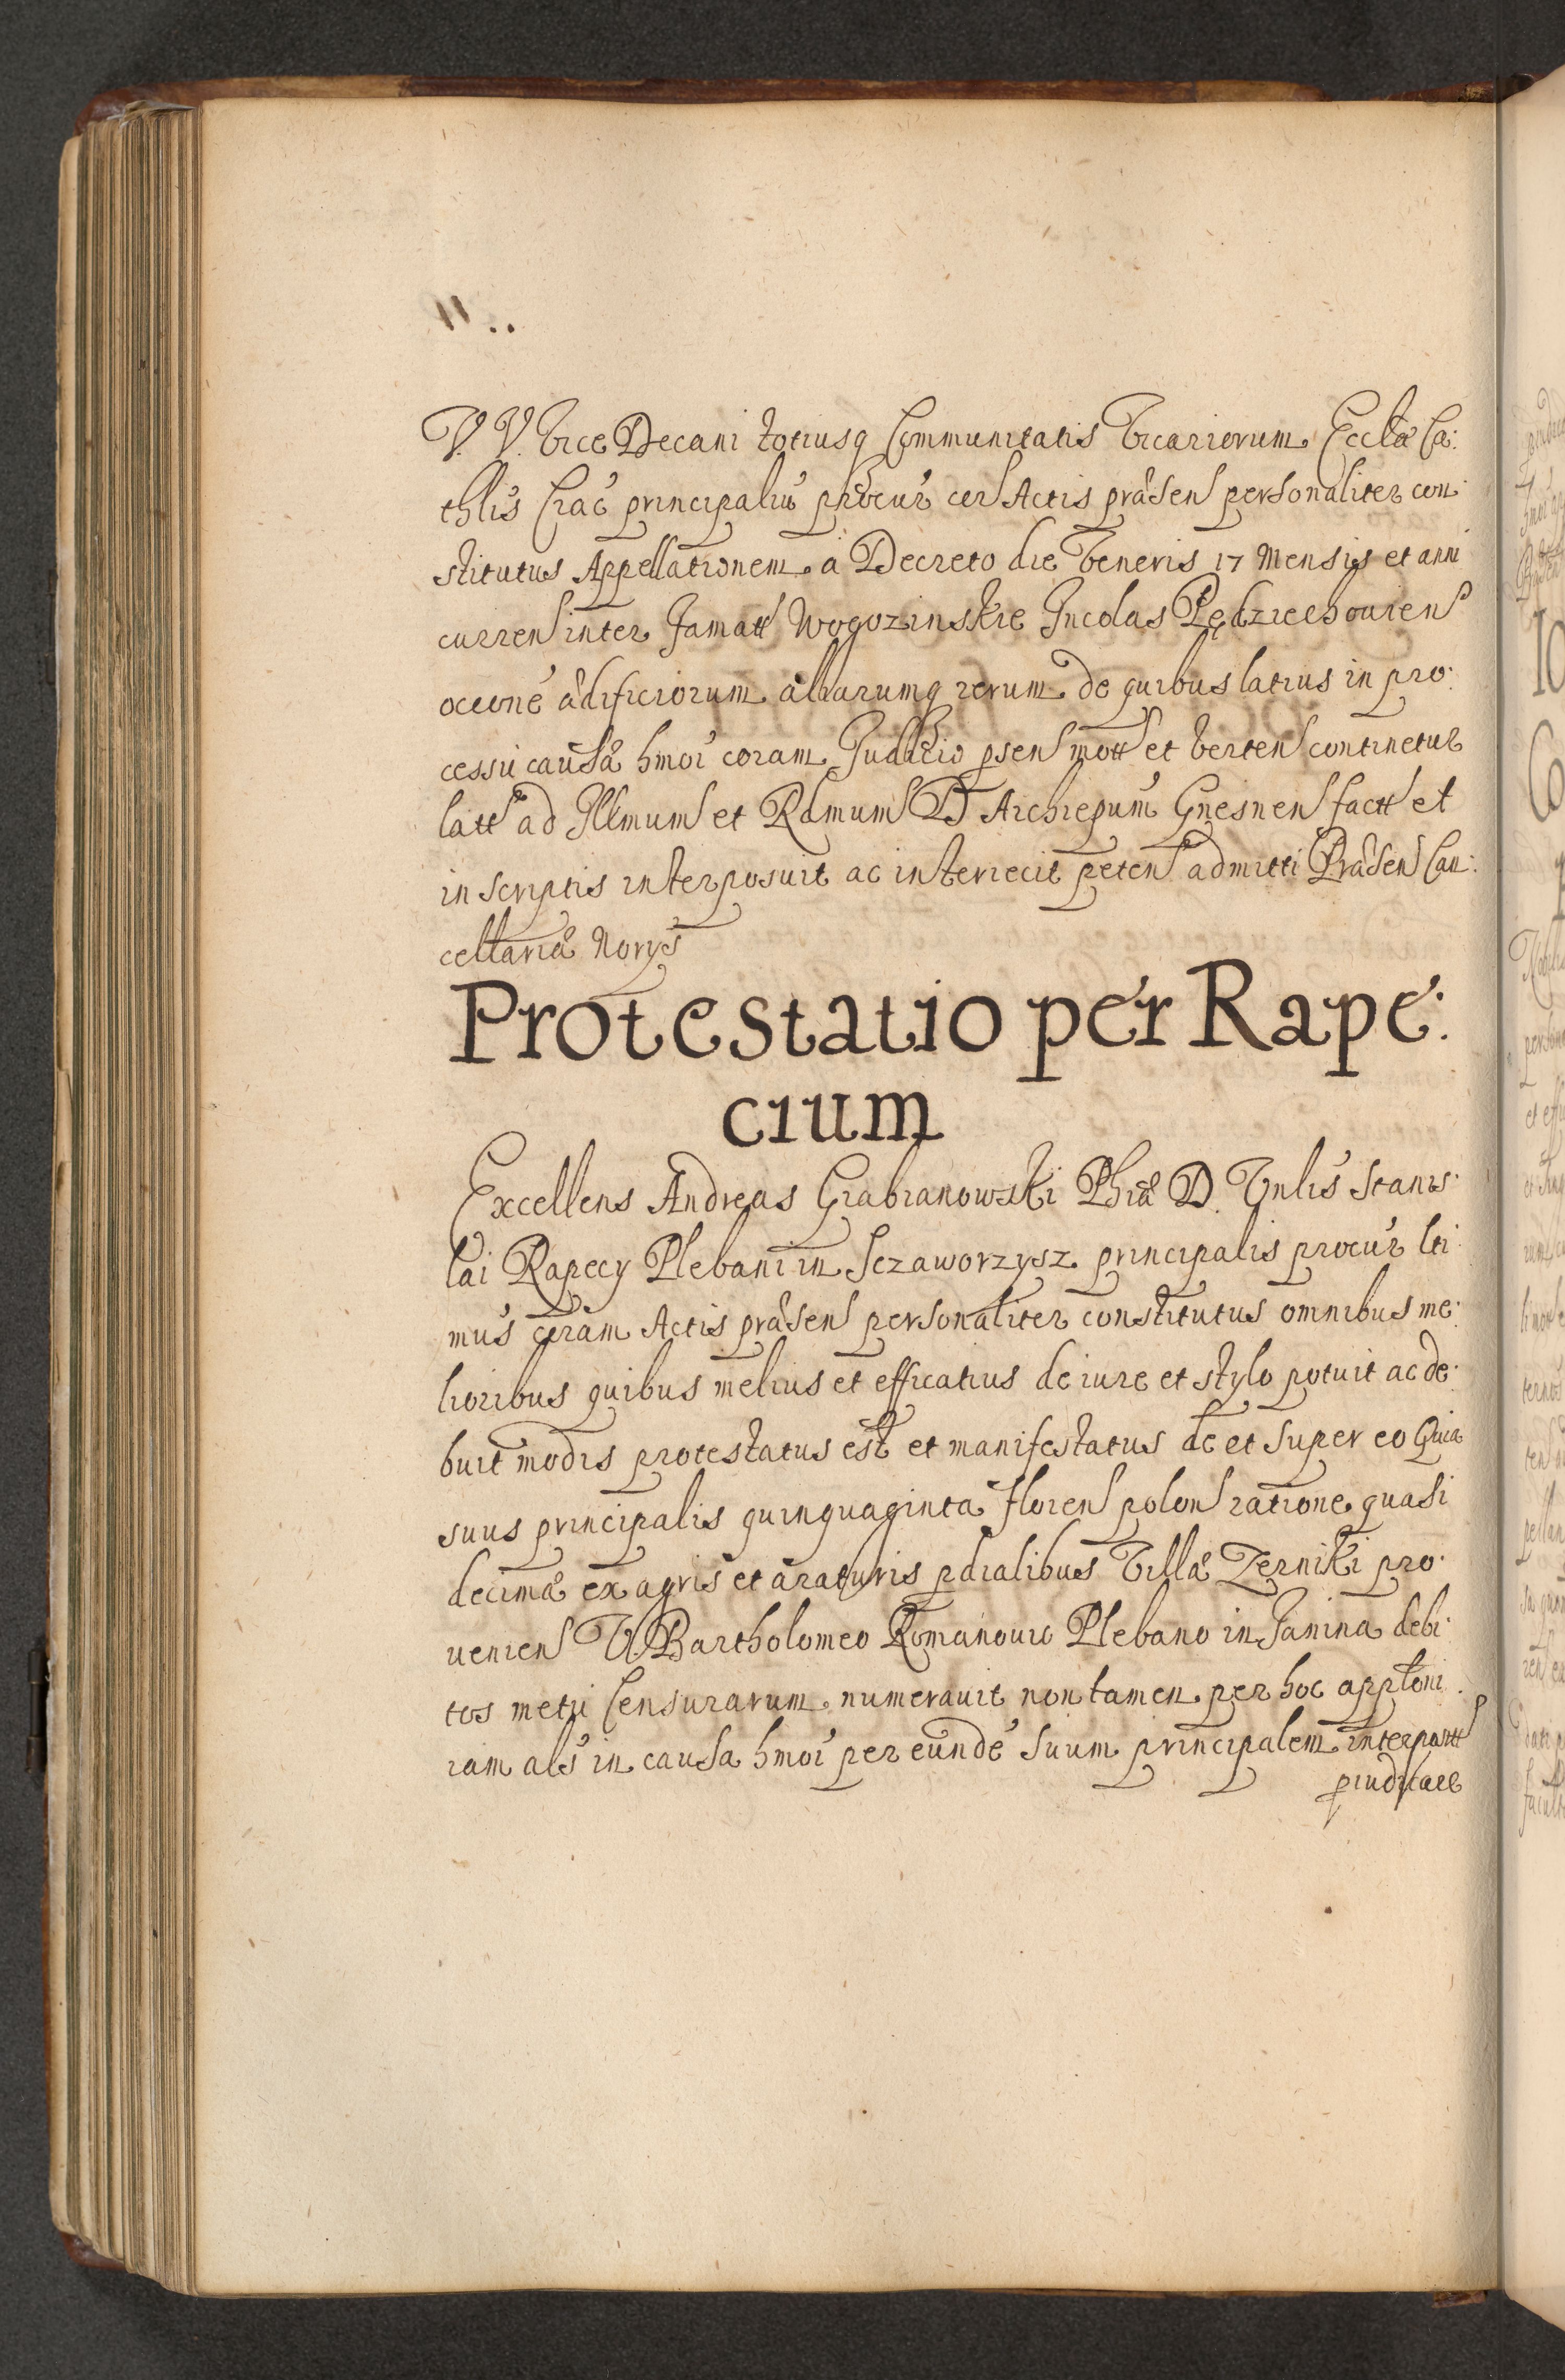 V. V. Vice Decani totiusq Communitatis Vicariorum Eccłæ Ca:
thlis Crac principaliu procur cor Actis præsen personaliter con
stitutus Appellationem a Decreto die Veneris 17 Mensis et anni
curren inter Famatt Wogozinskie Incolas Pędziechouien
occone ædificiorum aliarumq rerum de quibus latius in pro:
cessu causæ hmoi coram Judicio psen mott et verten continetur
latt ad Illmum et Rdmum D Archiepum Gnesnen factt et
in scriptis interposuit ac interiecit peten admitti Præsen Can:
cellariæ Norys
Protestatio per Rape:
cium
Excellens Andreas Grabianowski Phiæ D. Vnlis Stanis:
lai Rapecy Plebani in Sczaworzysz principalis procur lti
mus coram Actis præsen personaliter constitutus omnibus me:
lioribus quibus melius et efficatius de iure et stylo potuit ac de:
buit modis protestatus est et manifestatus de et super eo Quia
suus principalis quinquaginta floren polon ratione quasi
decimæ ex agris et araturis pdialibus Villæ Zerniki pro:
uenien V Bartholomeo Romanouic Plebano in Janina debi:
tos metu Censurarum numerauit non tamen per hoc appltoni
iam als in causa hmoi per eunde suum principalem interpositt
piudicare